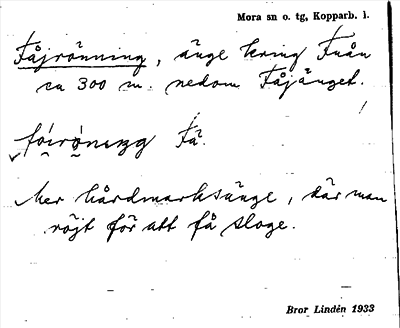 Mora sn o. tg, Kopparb. l.
Fåjrönning, änge kring Fuån
ca 300 m. nedom Fåjänget.
fóiròningg Få.
Mer hårdmarksänge, där man
röjt för att få sloge.
Bror Lindén 1933